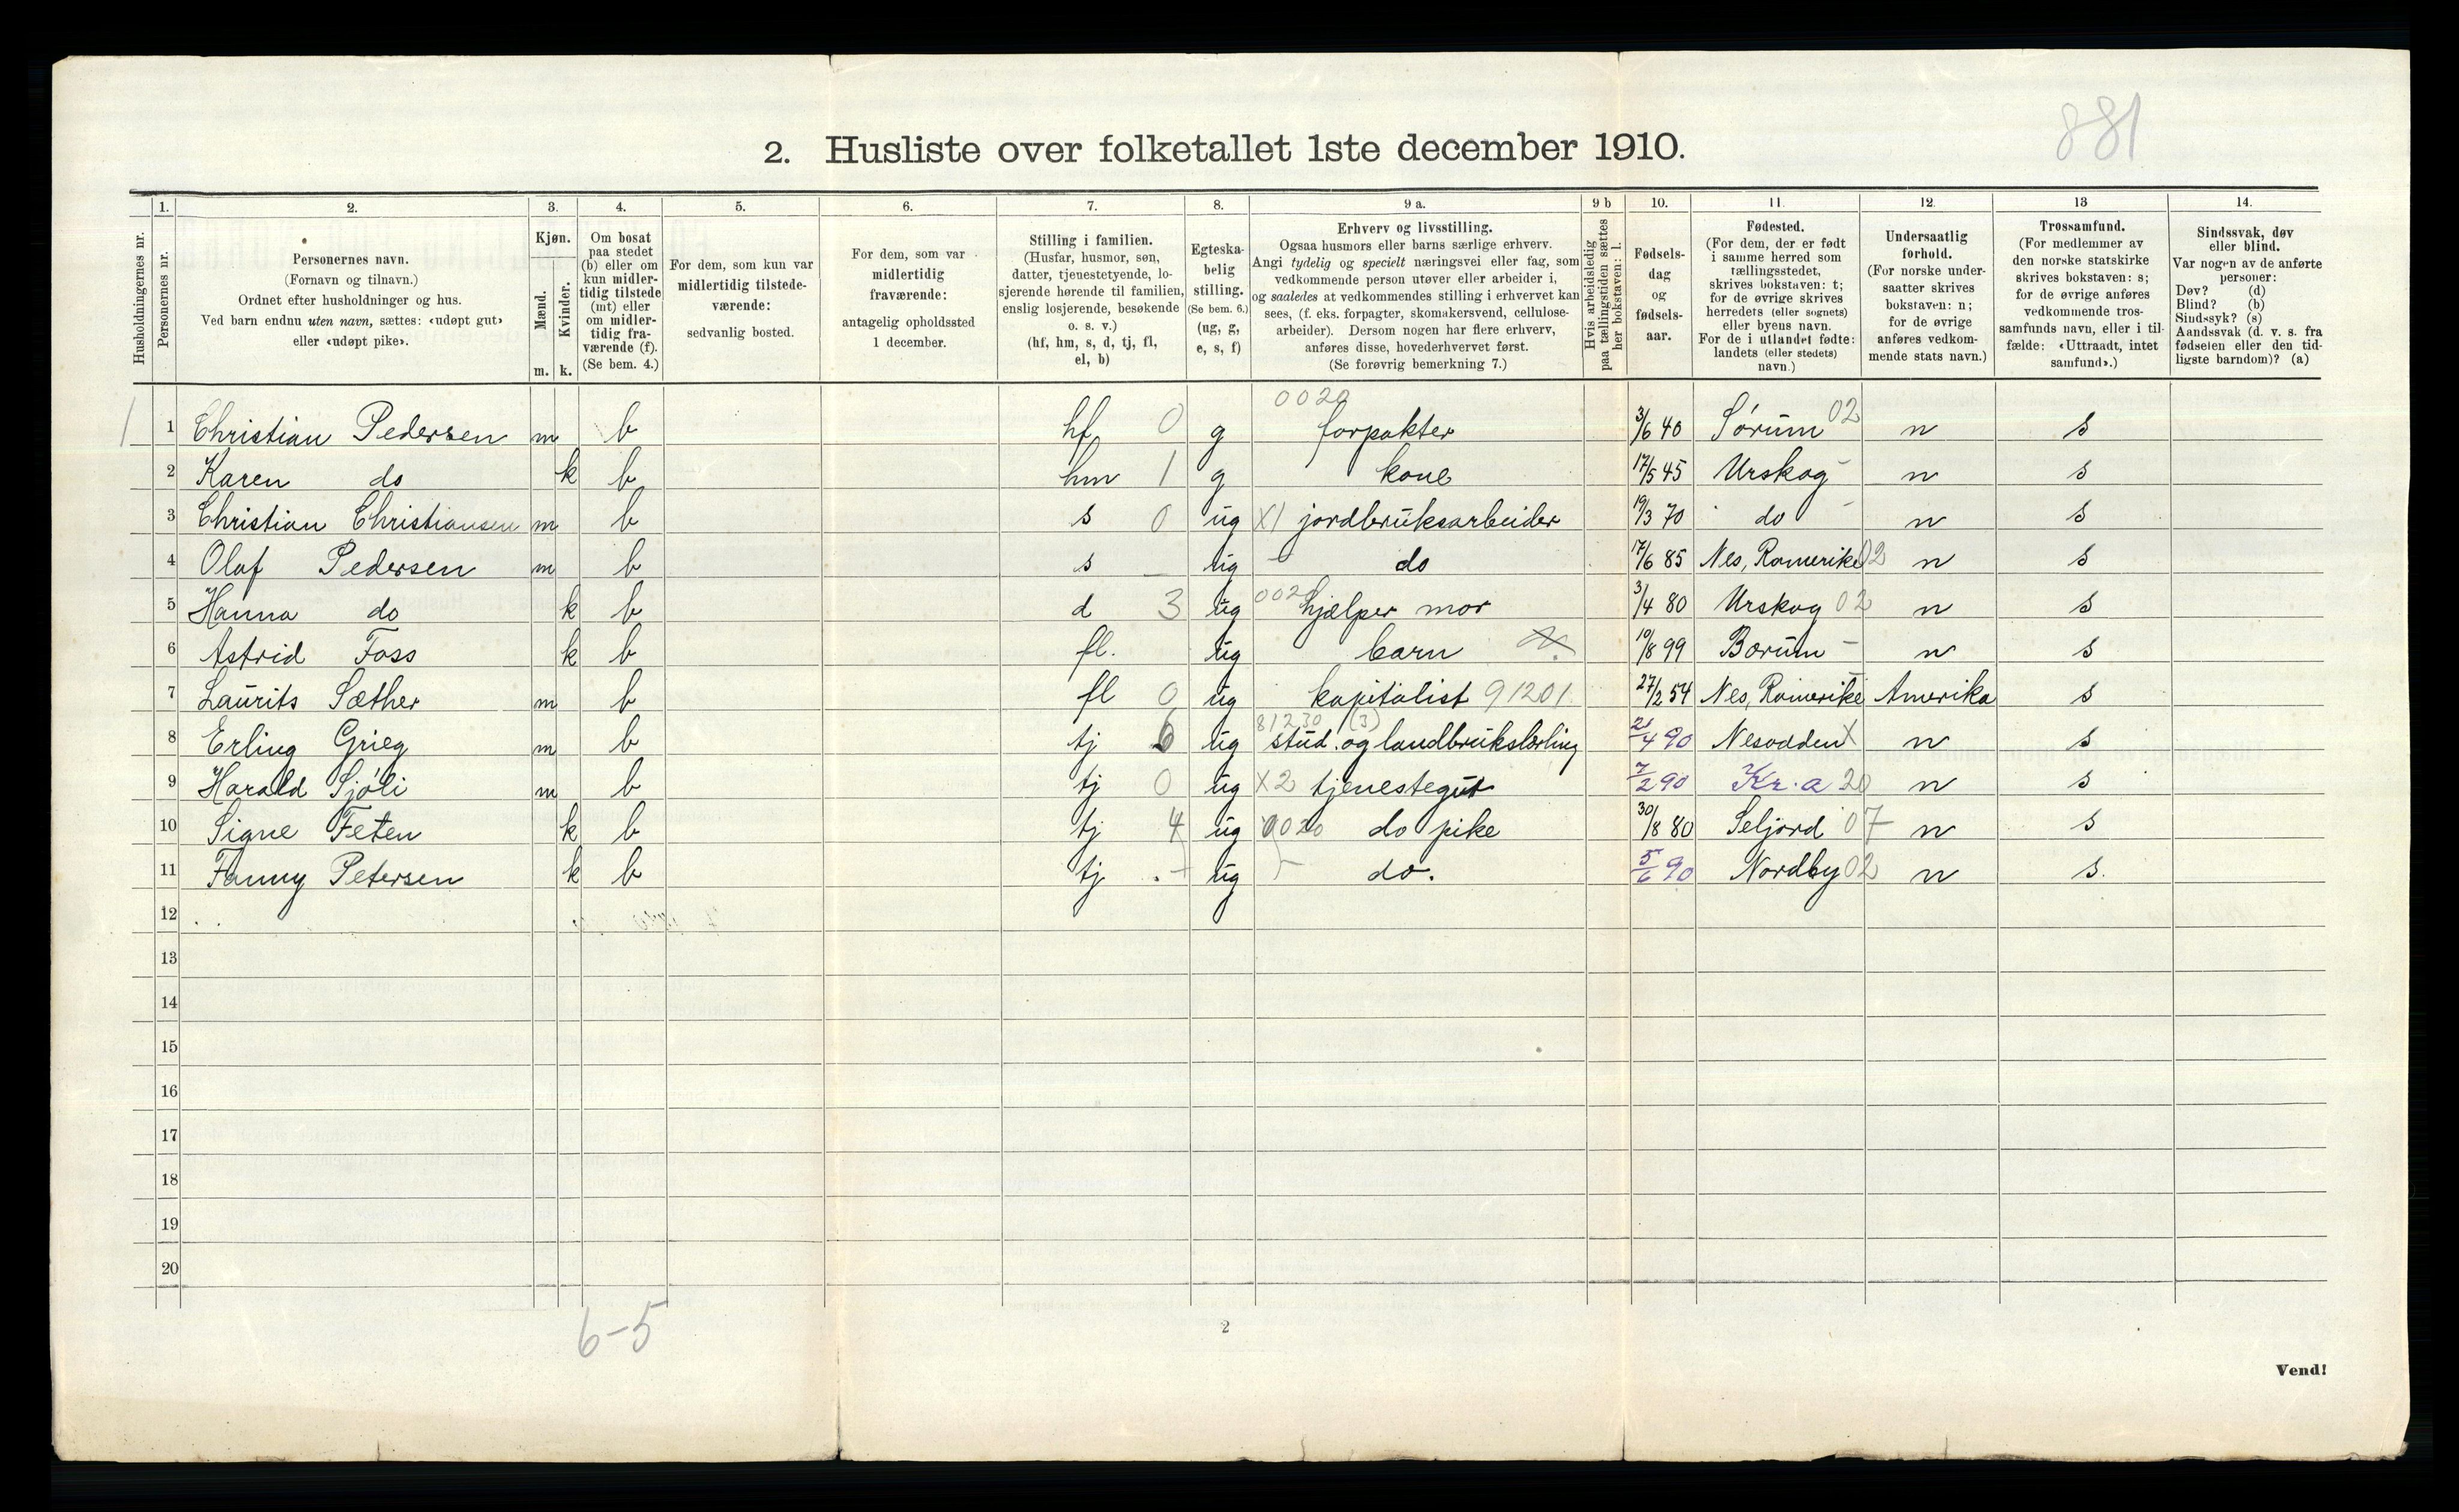 881
2. Husliste over folketallet 1ste december 1910.
Husholdningernes nr.
1. Personernes nr.
2. Personernes navn. (Fornavn og tilnavn.) Ordnet efter husholdninger og hus. Ved barn endnu uten navn, sættes: «udøpt gut» eller «udøpt pike».
3. Kjøn. Mænd. m. Kvinder. k.
4. Om bosat paa stedet (b) eller om kun midlertidig tilstede (mt) eller om midlertidig fraværende (f). (Se bem. 4.)
5. For dem, som kun var midlertidig tilstedeværende: sedvanlig bosted.
6. For dem, som var midlertidig fraværende: antagelig opholdssted 1 december.
7. Stilling i familien. (Husfar, husmor, søn, datter, tjenestetyende, losjerende hørende til familien, enslig losjerende, besøkende o. s. v.) (hf, hm, s, d, tj, fl, el, b)
8. Egteskabelig stilling. (Se bem. 6.) (ug, g, e, s, f)
9 a. Erhverv og livsstilling. Ogsaa husmors eller barns særlige erhverv. Angi tydelig og specielt næringsvei eller fag, som vedkommende person utøver eller arbeider i, og saaledes at vedkommendes stilling i erhvervet kan sees, (f. eks. forpagter, skomakersvend, cellulosearbeider). Dersom nogen har flere erhverv, anføres disse, hovederhvervet først. (Se forøvrig bemerkning 7.)
9 b Hvis arbeidsledig paa tællingstiden sættes her bokstaven: l.
10. Fødselsdag og fødselsaar.
11. Fødested. (For dem, der er født i samme herred som tællingsstedet, skrives bokstaven: t; for de øvrige skrives herredets (eller sognets) eller byens navn. For de i utlandet fødte: landets (eller stedets) navn.)
12. Undersaatlig forhold. (For norske undersaatter skrives bokstaven: n; for de øvrige anføres vedkommende stats navn.)
13 Trossamfund. (For medlemmer av den norske statskirke skrives bokstaven: s; for de øvrige anføres vedkommende trossamfunds navn, eller i tilfælde: «Uttraadt, intet samfund».)
14. Sindssvak, døv eller blind. Var nogen av de anførte personer: Døv? (d) Blind? (b) Sindssyk? (s) Aandssvak (d. v. s. fra fødselen eller den tidligste barndom)? (a)
1 1 Christian Pedersen m b hf 0 g 0020 forpakter 3/6 40 Sørum 02 n s
2 Karen do k b hm 1 g kone 17/5 45 Urskog - n s
3 Christian Christiansen m b s 0 ug X1 jordbruksarbeider 19/3 70 do - n s
4 Olaf Pedersen m b s - ug - do 17/6 85 Nes, Romerike 02 n s
5 Hanna do k b d 3 ug 002 hjælper mor 3/4 80 Urskog 02 n s
6 Astrid Foss k b fl. ug barn 10/8 99 Bærum - n s
7 Laurits Sæther m b fl 0 ug kapitalist 91201. 27/2 54 Nes, Romerike Amerika s
8 Erling Grieg m b tj 6 ug 81230 (3) stud. og landbrukslærling 21/4 90 Nesodden X n s
9 Harald Sjøli m b tj 0 ug X2 tjenestegut 7/2 90 Kr.a 20 n s
10 Signe Feten k b tj 4 ug 0020 do pike 30/8 80 Seljord 07 n s
11 Fanny Petersen k b tj - ug - do. 5/6 90 Nordby 02 n s.
12
13
14
15
16
17
18
19
20
6-5
2
Vend!